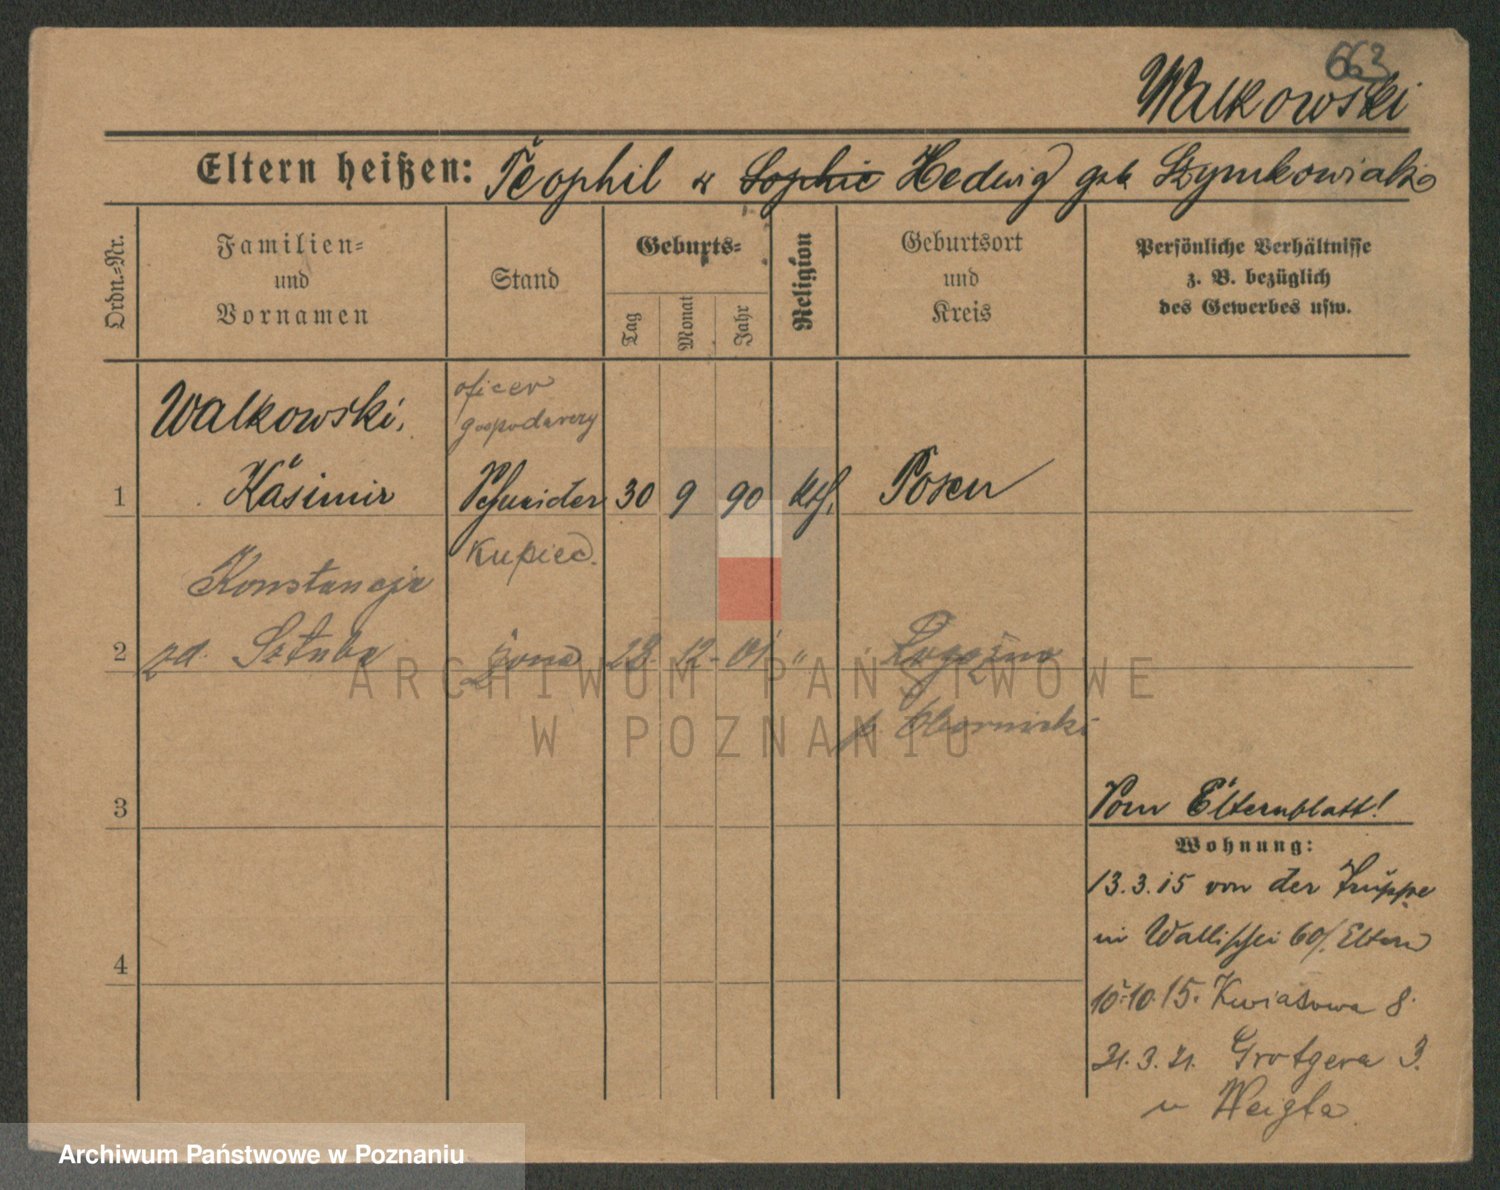 663
Walkowski
Eltern heißen: Teophil u Sophie Hedwig geb Szymkowiak
Ordn.=Nr.
Familien=
und
Vornamen
Stand
Geburts=
Tag
Monat
Jahr
Religion
Geburtsort
und
Kreis
Persönliche Verhältnisse
z. B. bezüglich
des Gewerbes usw.
Walkowski,
oficer
gospodarczy
1 Kasimir Schneider 30 9 90 kth. Posen
kupiec.
Konstancja
2 zd. Sztuba żona 28. 12. 01 " Rogoźno
p. Obornicki
3
Vom Elternblatt!
Wohnung:
13.3.15 von der Truppe
in Wallischei 60/. Eltern
4
15.10.15. Kwiatowa 8.
21.3.21. Grotgera 3.
u Weigta
ARCHIWUM PAŃSTWOWE
W POZNANIU
Archiwum Państwowe w Poznaniu